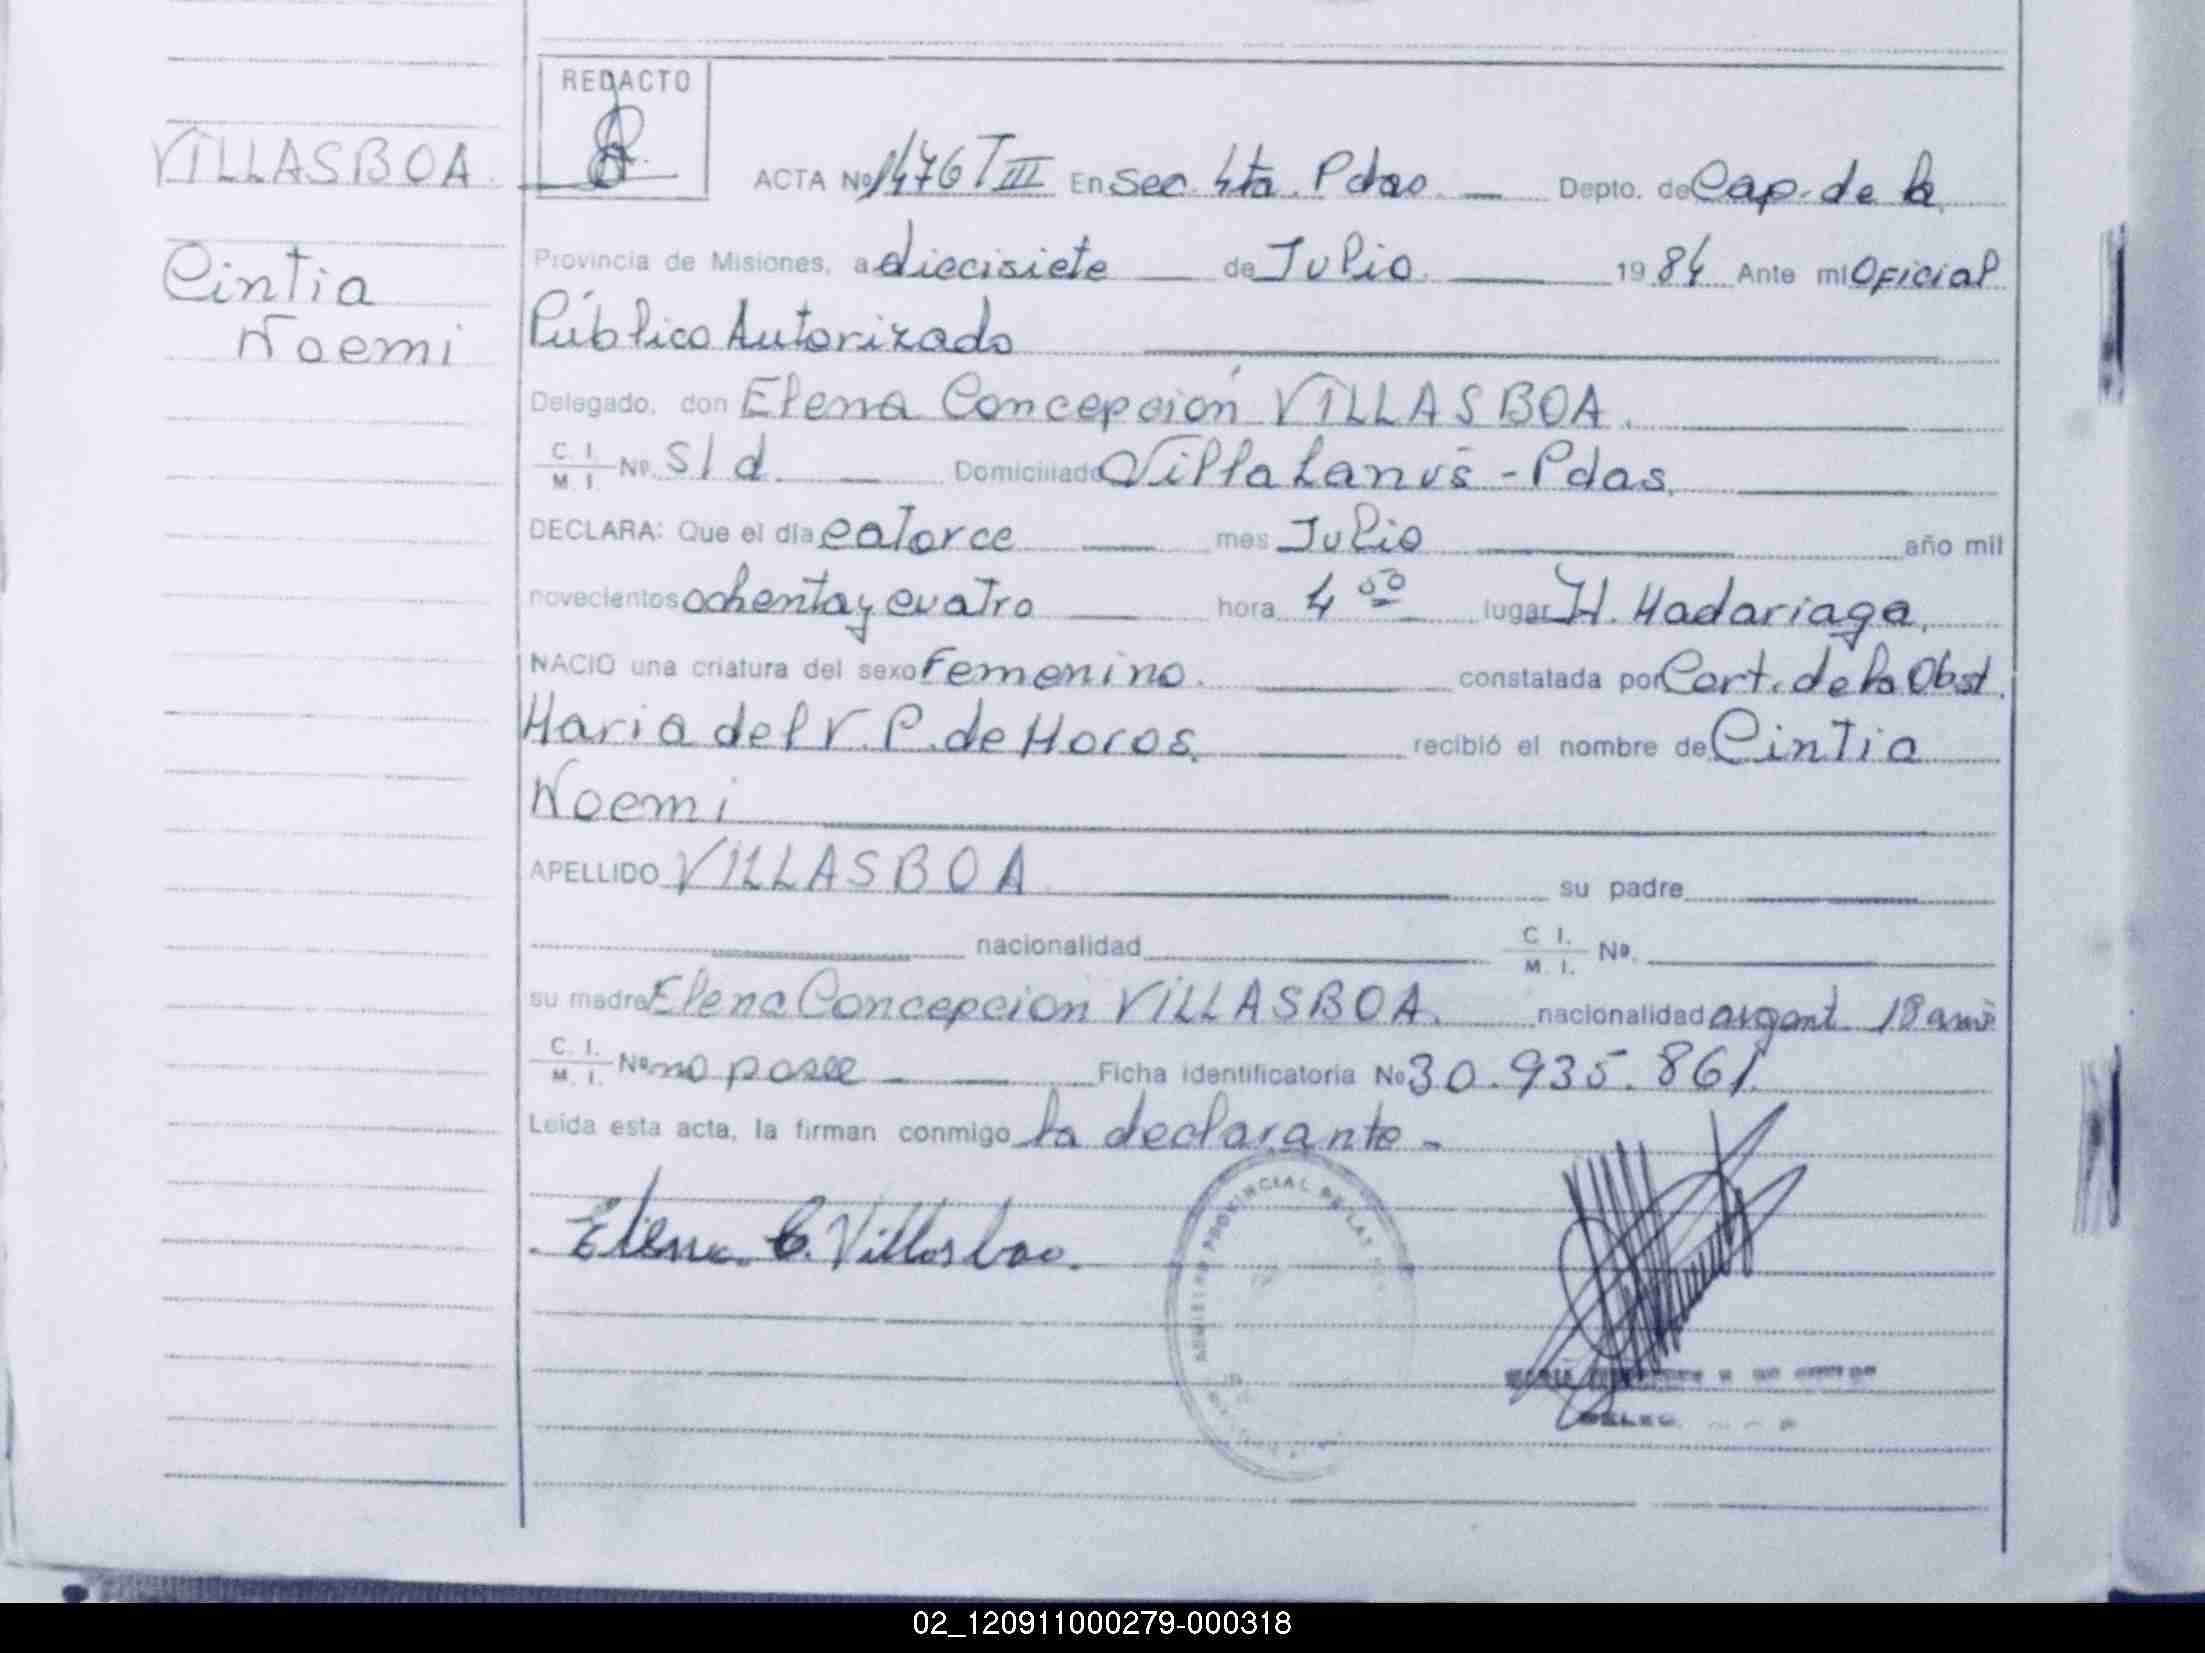 REDACTO
VILLASBOA
Cintia
Noemi
ACTA Nº 1476 T III En Sec. 4ta. Pdas. Depto. de Cap. de la
Provincia de Misiones, a diecisiete de Julio. 1984 Ante mi Oficial
Público Autorizado
Delegado, don Elena Concepción VILLASBOA.
C. I.
M. I. Nº. S/d. Domiciliado Villa Lanús - Pdas.
DECLARA: Que el día catorce mes Julio año mil
novecientos ochenta y cuatro hora 4 50 lugar H. Madariaga,
NACIO una criatura del sexo Femenino. constatada por Cert. de la Obst.
Maria del V. P. de recibió el nombre de Cintia
Noemi
APELLIDO VILLASBOA su padre
nacionalidad C. I.
M. I. Nº.
su madre Elena Concepcion VILLASBOA. nacionalidad argent 18
C. I.
M. I. Nº no posee Ficha identificatoria Nº 30.935.861
Leída esta acta, la firman conmigo la declarante -
Elena C. Villasboa.
PROVINCIAL DE LAS
02_120911000279-000318